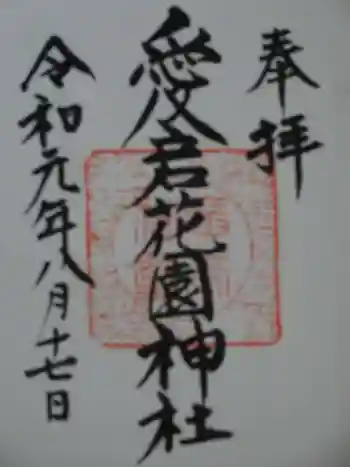 奉拝
愛宕花園神社
令和元年八月十七日